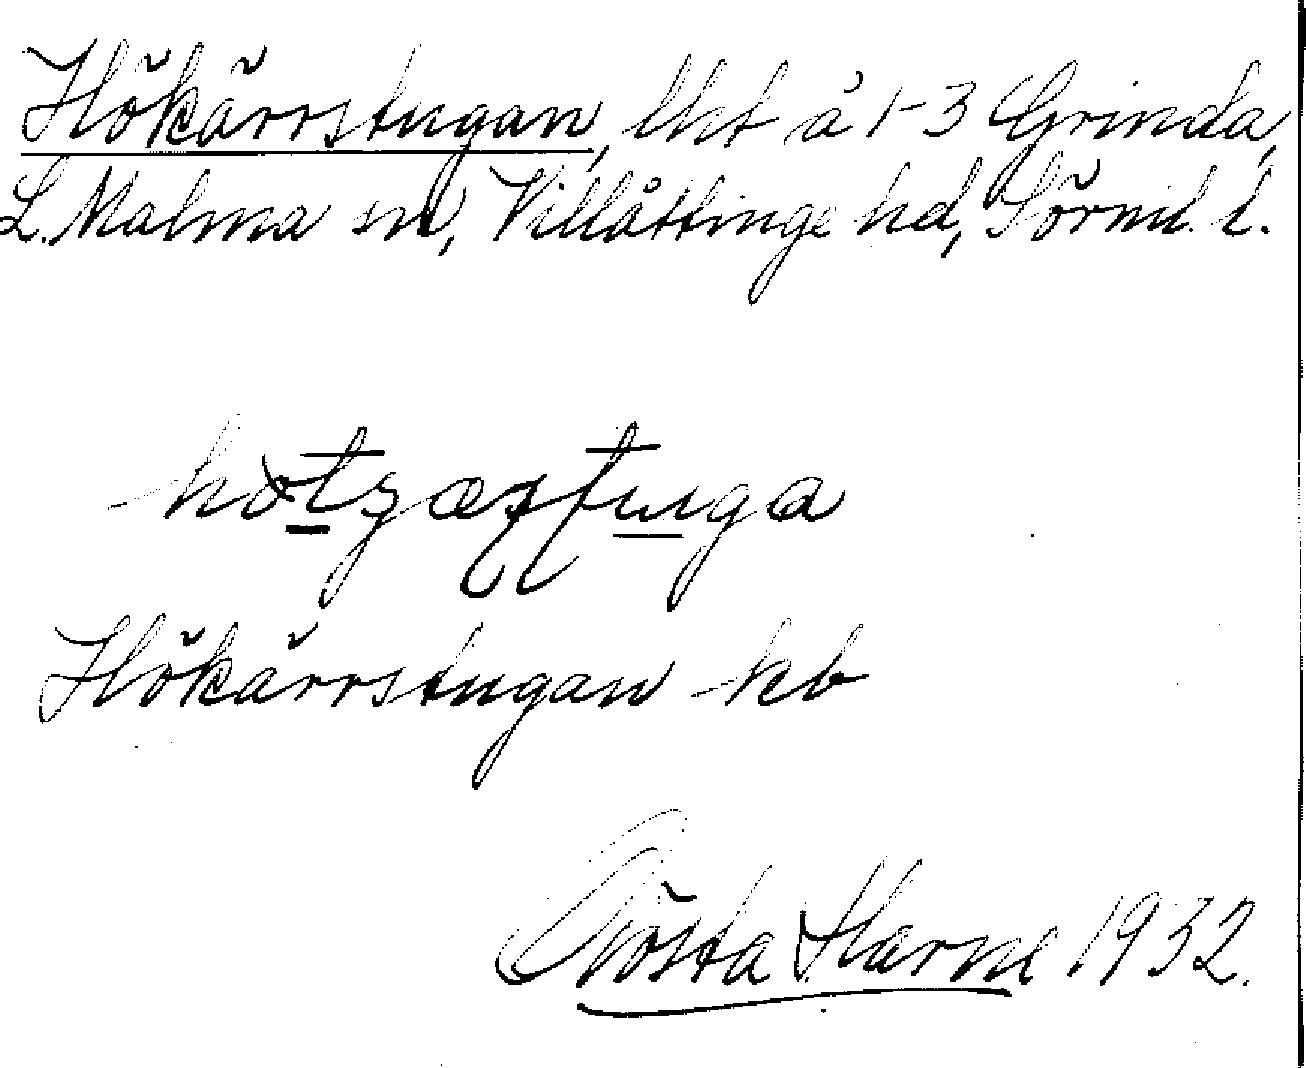 Hökärrstugan, lht å 1-3 Grinda,
L. Malma sn, Villåttinge hd, Sörml. l.
Hökärrstugan -kb
Gösta Harne 1932.